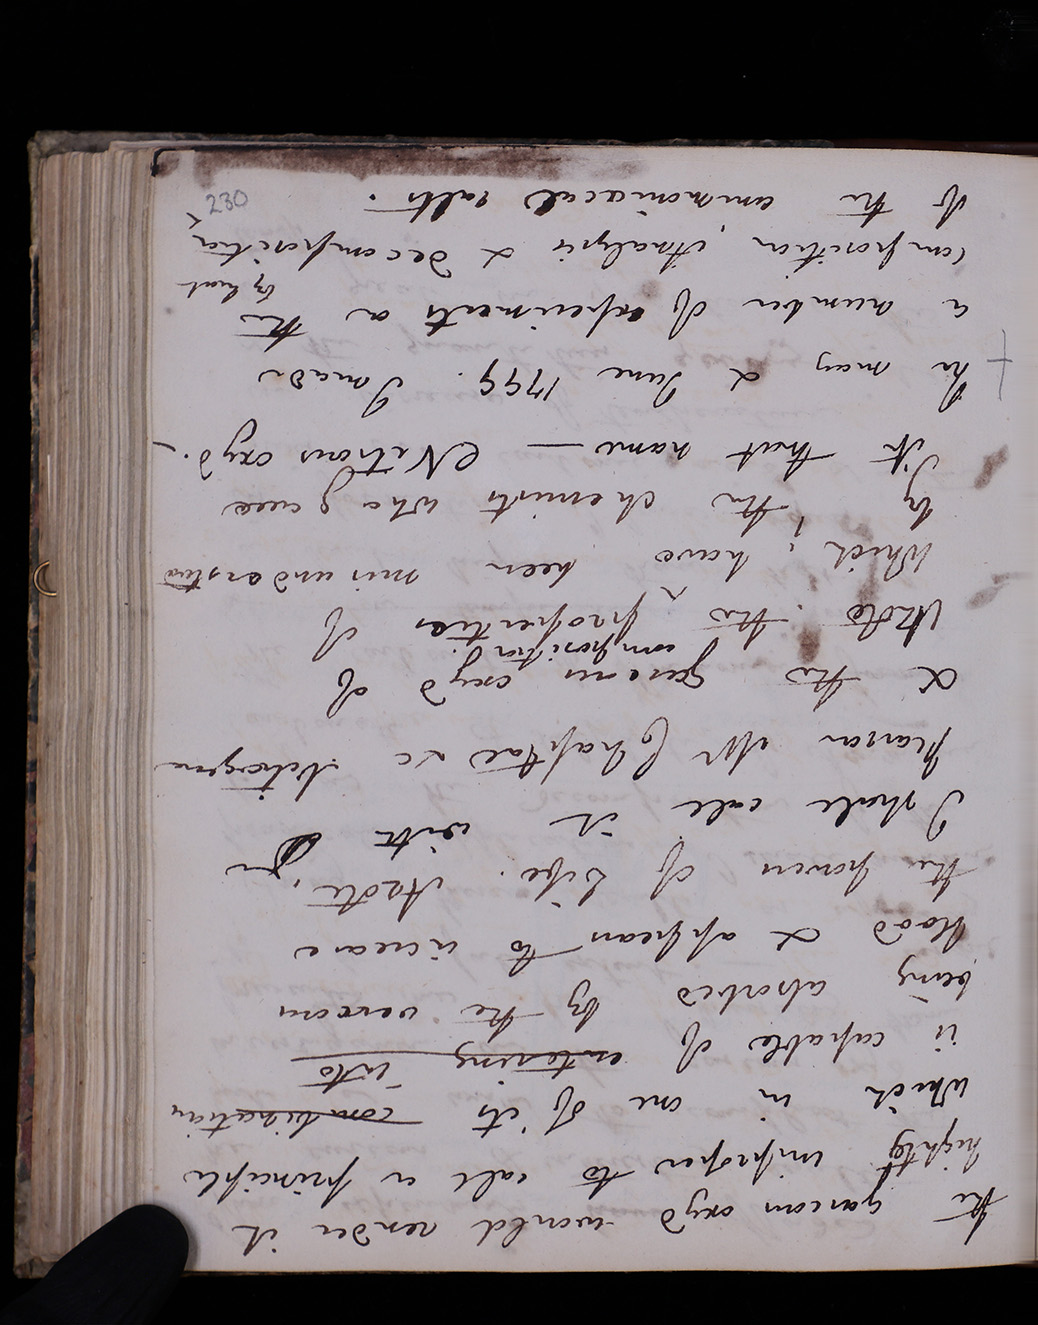 the gaseous oxyd would render it
highly improper to call a principle
which in one of its combination
is capable of entering into
being absorbed by the venous
blood & appears to increase
the powers of Life. Azote, for
I shall call it with
Pearson Mr Chaptal &c Nitrogene
& the gaseous oxyd of
composition &
Azote the properties of
which, have been misunderstood
by the chemists who gave
it that name — Nitrous oxyd. —
In may & June 1799. I made
a number of experiments on the
by heat
composition, Analysis & decomposition
of the ammoniacal salts.
230